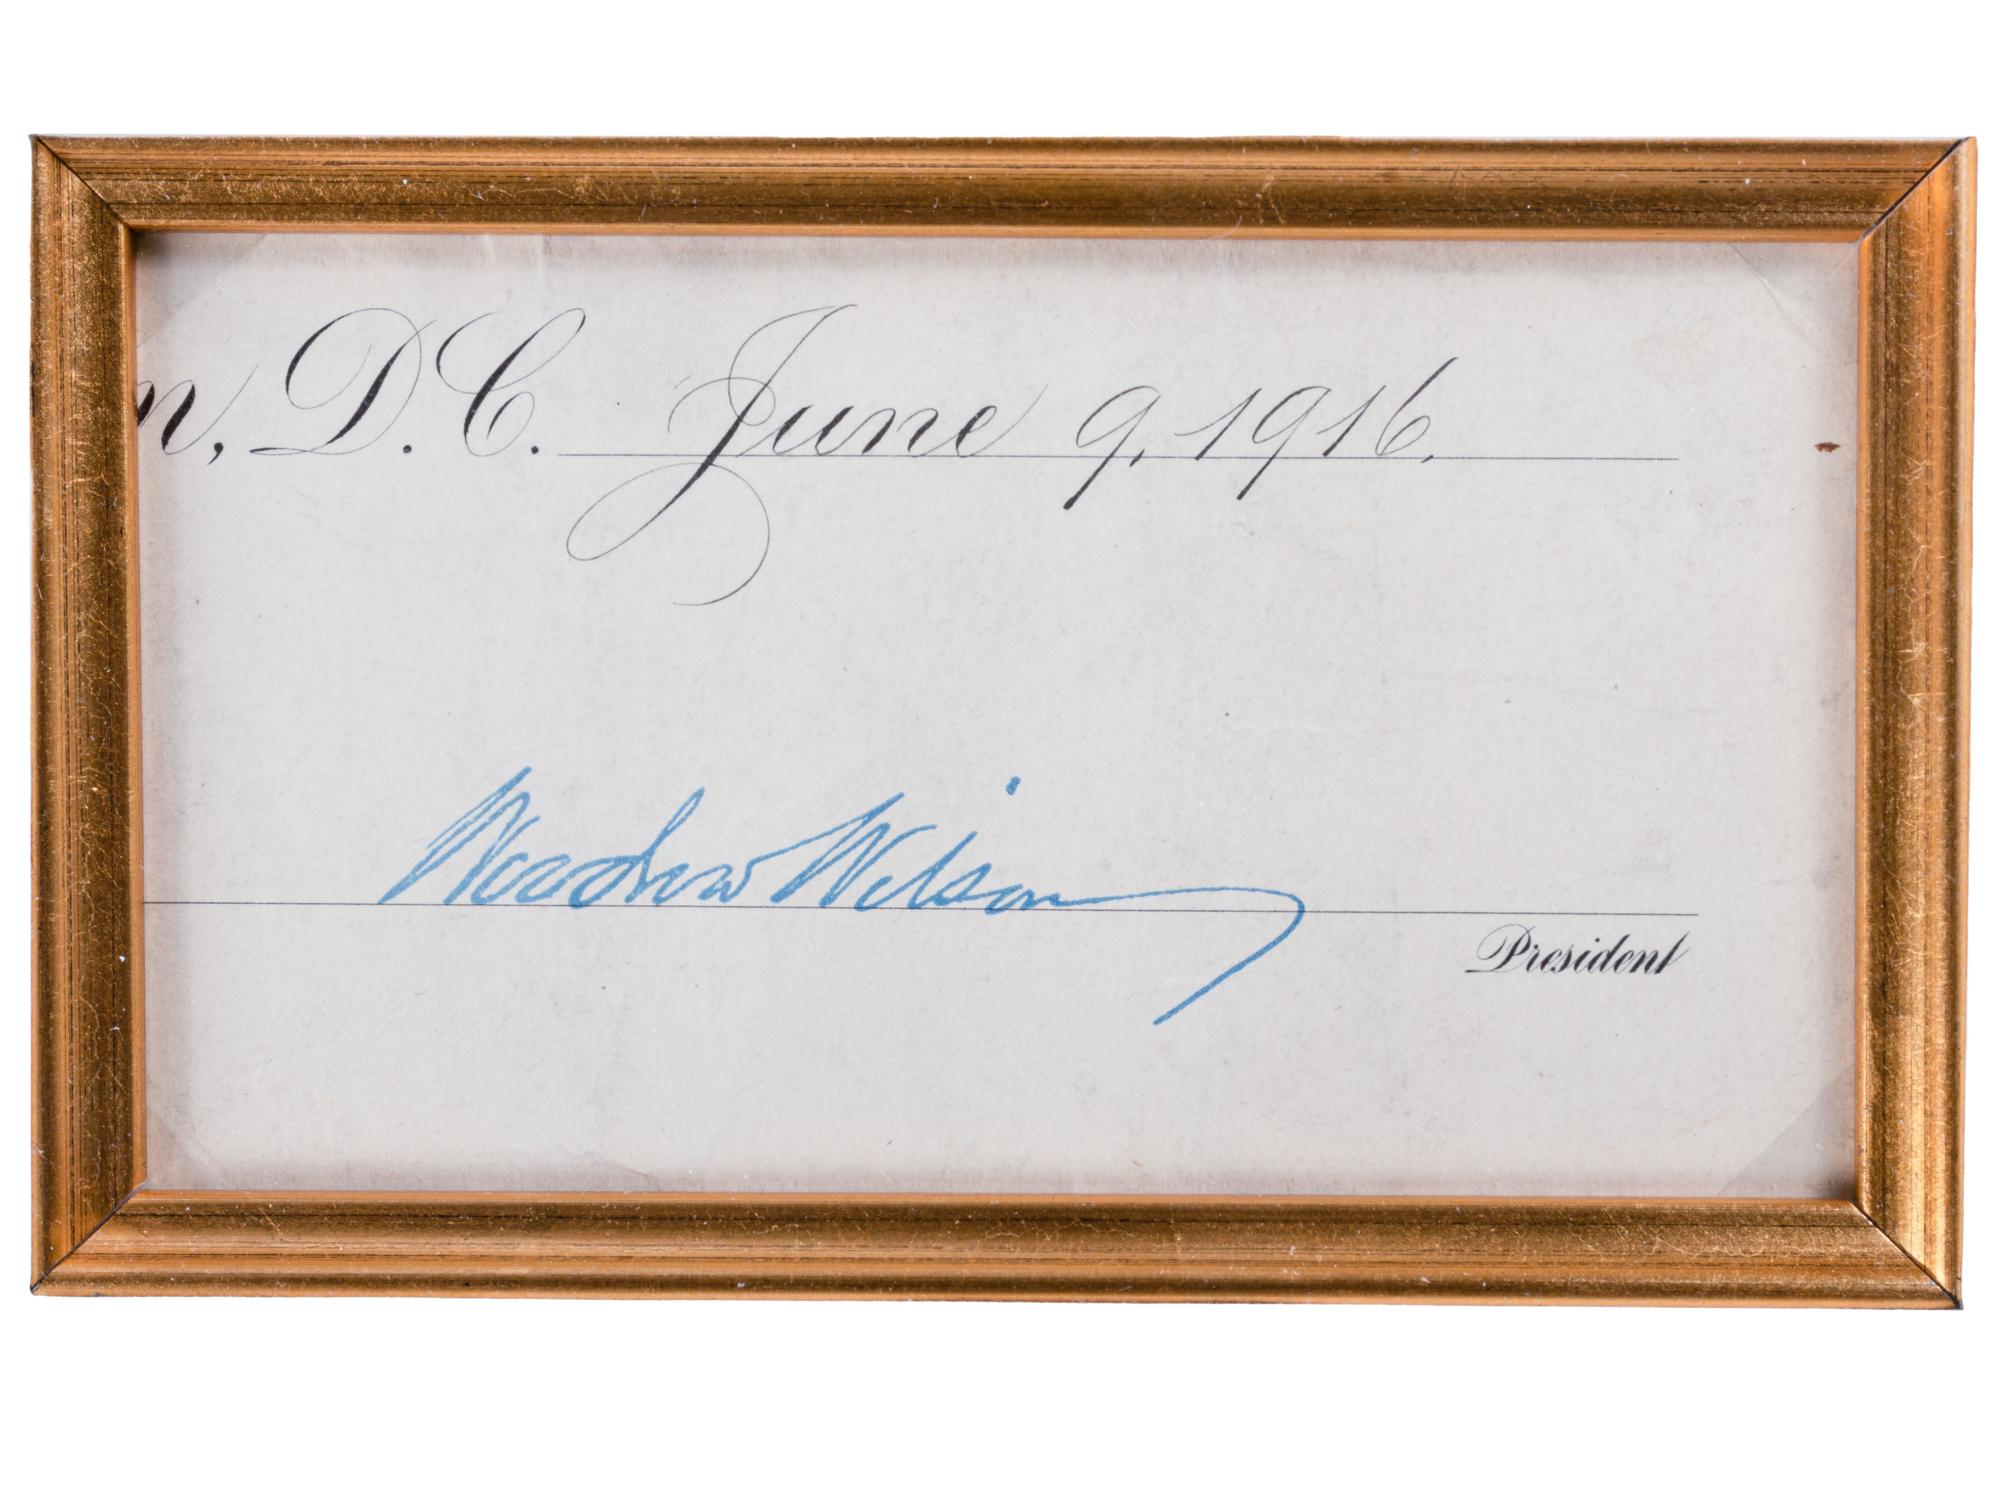 n, D.C. June 9, 1916.
Woodrow Wilson
President